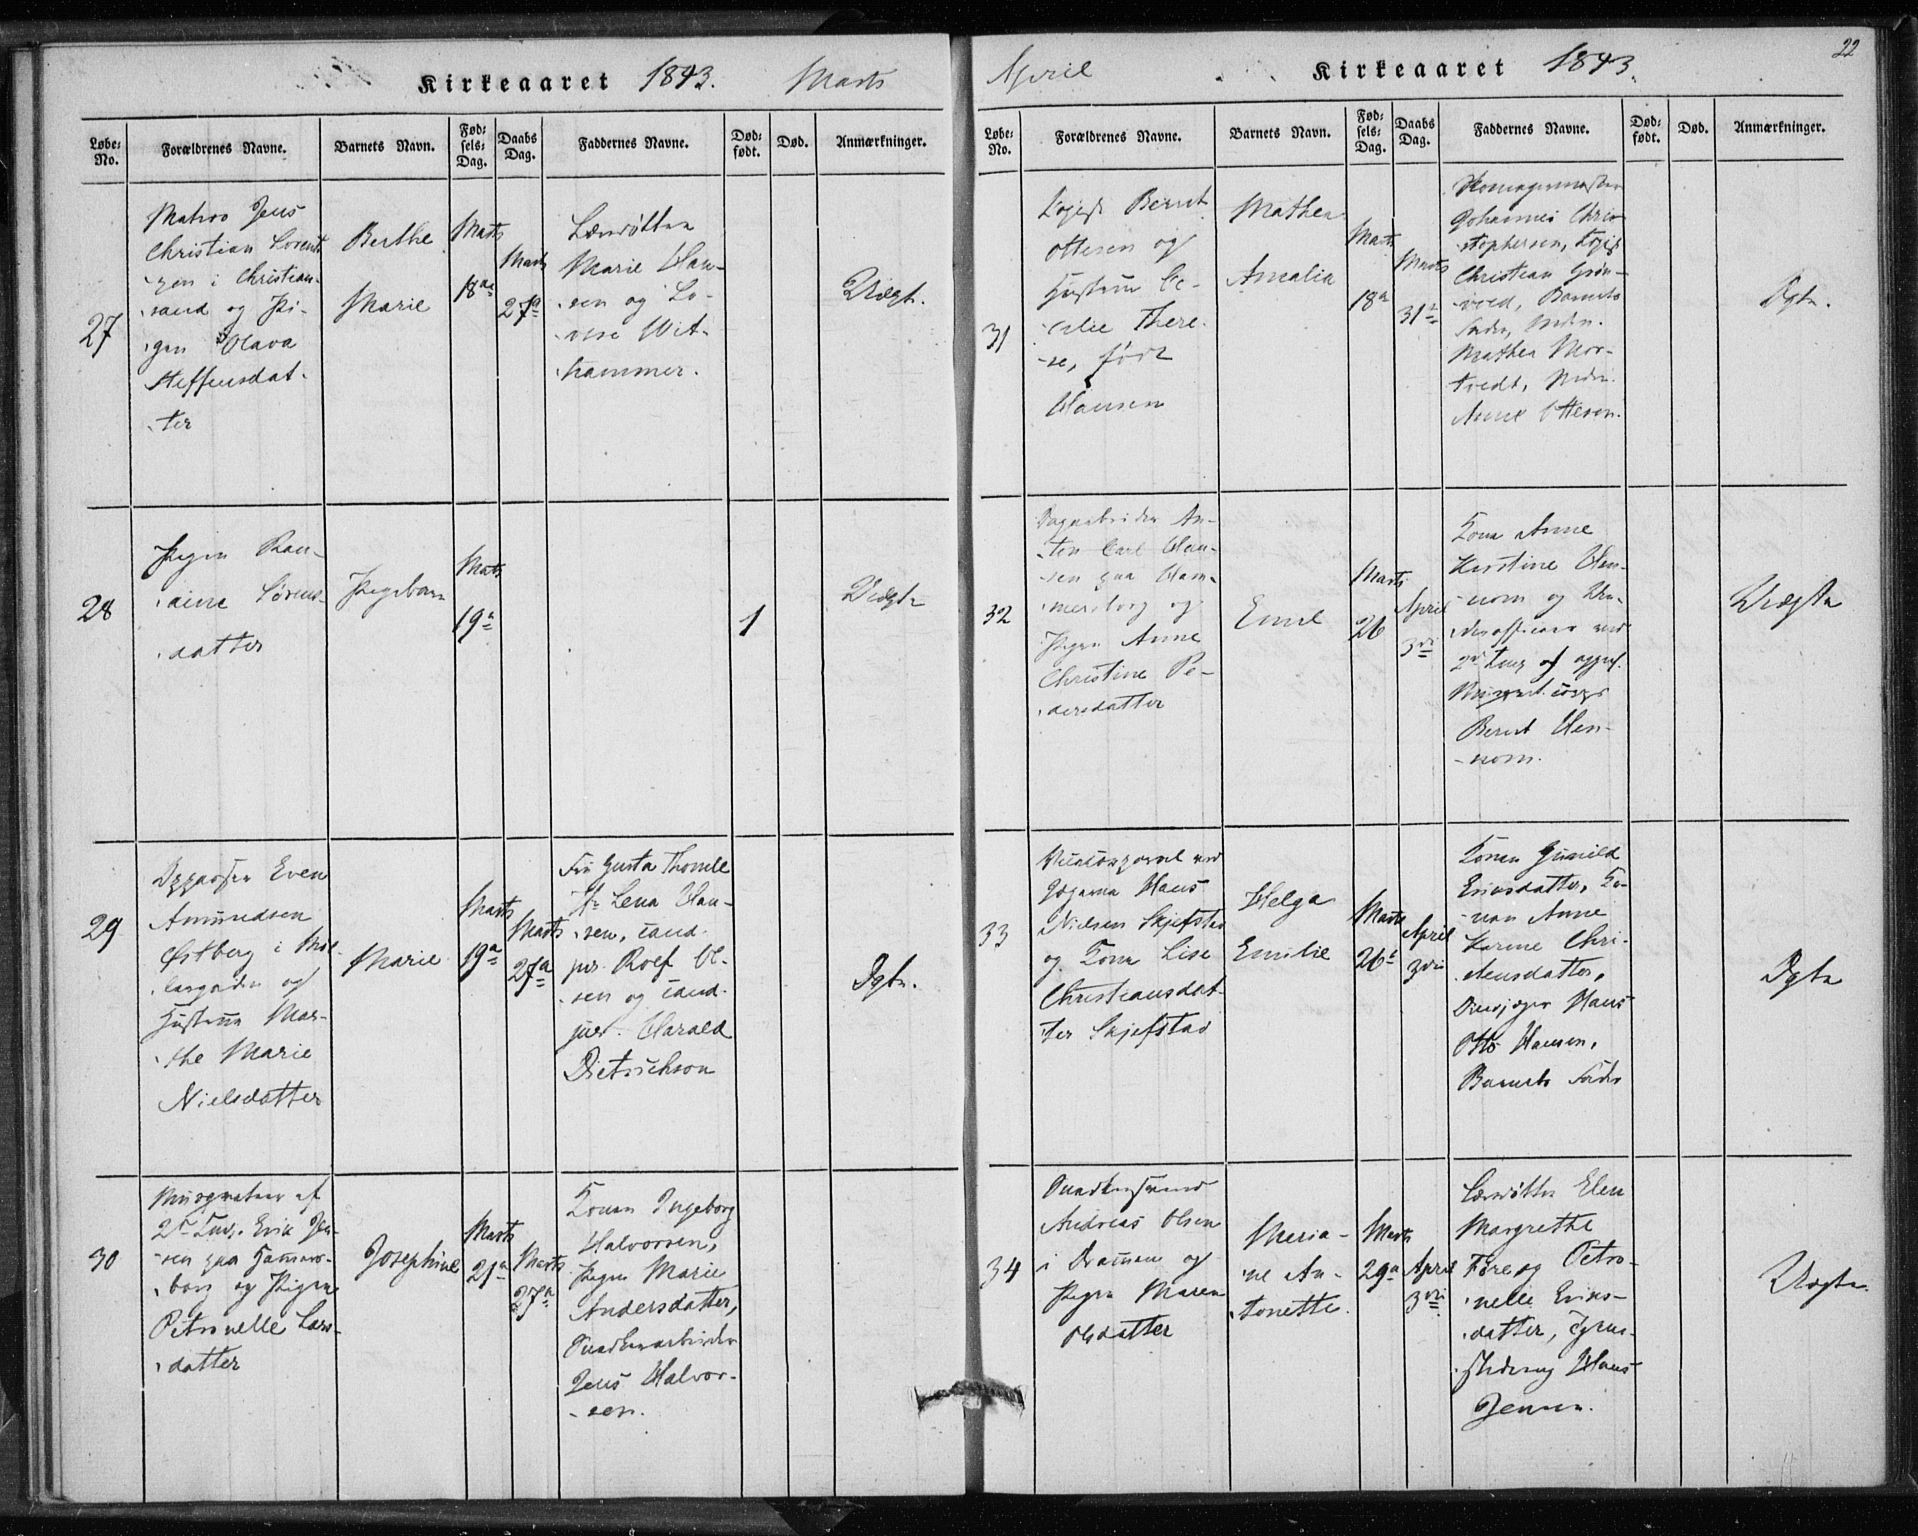 Kirkeaaret 1843. Marts
Løbe-No.
Forældrenes Navne.
Barnets Navn.
Fød-sels-Dag.
Daabs Dag.
Faddernes Navne.
Død-født.
Død.
Anmærkninger.
27
Matros Jens
Christian Lorent
zen i Christian-
sand og Pi-
gen Olava
Steffensdat-
ter
Berthe
Marie
Marts
18de
Marts
27de
Marie Han-
sen og Lo-
vise Wit-
hammer.
Uægte.
28
Pigen Ran-
dine Sørens-
datter
Pigebarn
Marts
19de
1
Uægte
29
Even
Amundsen
Østberg i Møl-
lergaden og
Hustrue Mar-
the Marie
Nielsdatter
Marie
Marts
19de
Marts
27de
Fru Gusta Thomle
Lena Han-
sen, cand.
Rolf Ol-
sen og cand.
jur. Harald
Dietrichson
Ægte.
30
Erik Jen-
sen paa Hammers-
borg og Pigen
Petronelle Lars-
datter
Josephine
Marts
21de
Marts
27de
Konen Ingeborg
Halvorsen,
Pigen Marie
Andersdatter,
Jens Halvor-
sen.
22
April Kirkeaaret 1843.
Løbe-No.
Forældrenes Navne.
Barnets Navn.
Fød-sels-Dag.
Daabs Dag.
Faddernes Navne.
Død-født.
Død.
Anmærkninger.
31
Bernt
Ottesen og
Hustrue Ce-
cilie There-
se, født
Hansen
Mathea
Amalia
Marts
18de
Marts
31te
Skomagermester
Johannes Chris-
tophersen,
Christian Grøn-
vold, Barnets
Fader, Mdm.
Mathea Mor-
tvedt, Mdm.
Anne Ottesen.
Ægte.
32
Dagarbeider An-
ton Carl Han-
sen paa Ham-
mersborg og
Pigen Anne
Christine Pe-
dersdatter
Emil
Marts
26
April
3die
Kone Anne
Kirstine Hen-
nom og Un-
derofficeer ved
Bernt Hen-
nom.
Uægte
33
Hans
Nielsen Skjefstad
og Kone Lise
Christiansdat-
ter Skjefstad
Helga
Emilie
Marts
26de
April
3die
Konen Gunild
Eriksdatter, Ko-
nen Anne
Karine Chri-
stensdatter,
Hans
Otto Hansen,
Barnets Fader
Ægte
34
Andreas Olsen
i Drammen og
Pigen Maren
Olsdatter
Maria-
ne An-
tonette.
Marts
29de
April
3die
Elen
Margrethe
Fore og Petro-
nelle Eriks-
datter,
Hans
Jensen.
Uægte.